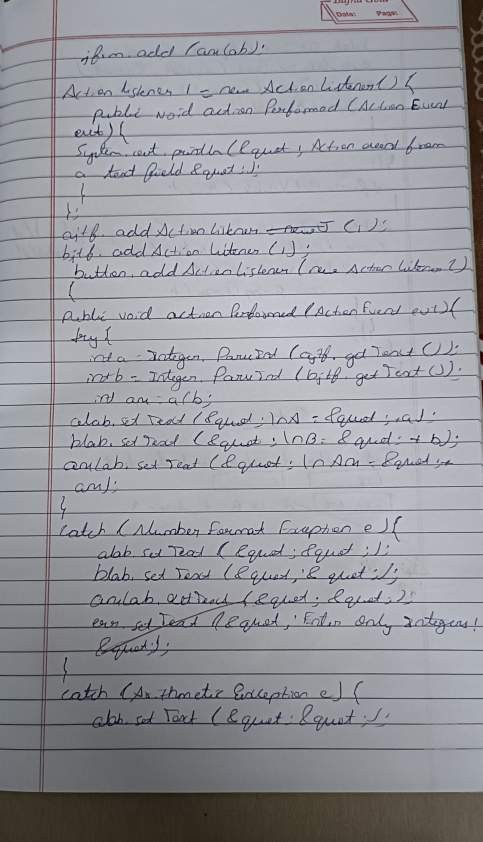 Date: Page:
jfrm. add (anlab);
Action listener l = new Action listener() {
public void action Performed (Action Event
evt) {
System. out. println (&quot; Action event from
a text field &quot;);
}
};
ajtf. add Action listener (l);
bjtf. add Action listener (l);
button. add Action listener (new Action listener ()
{
public void action Performed (Action Event evt) {
try {
int a = Integer. ParseInt (ajtf. get Text ());
int b = Integer. ParseInt (bjtf. get Text ());
int an = a/b;
alab. set Text (&quot; \nA = &quot; + a);
blab. set Text (&quot; \nB = &quot; + b);
anlab. set Text (&quot; \n An = &quot; +
an);
}
catch (Number Format Exception e) {
alab. set Text (&quot; &quot;);
blab. set Text (&quot; &quot;);
anlab. set Text (&quot; &quot;);
err. set Text (&quot; Enter Only Integers!
&quot;);
}
catch (Arithmetic Exception e) {
alab. set Text (&quot; &quot;);